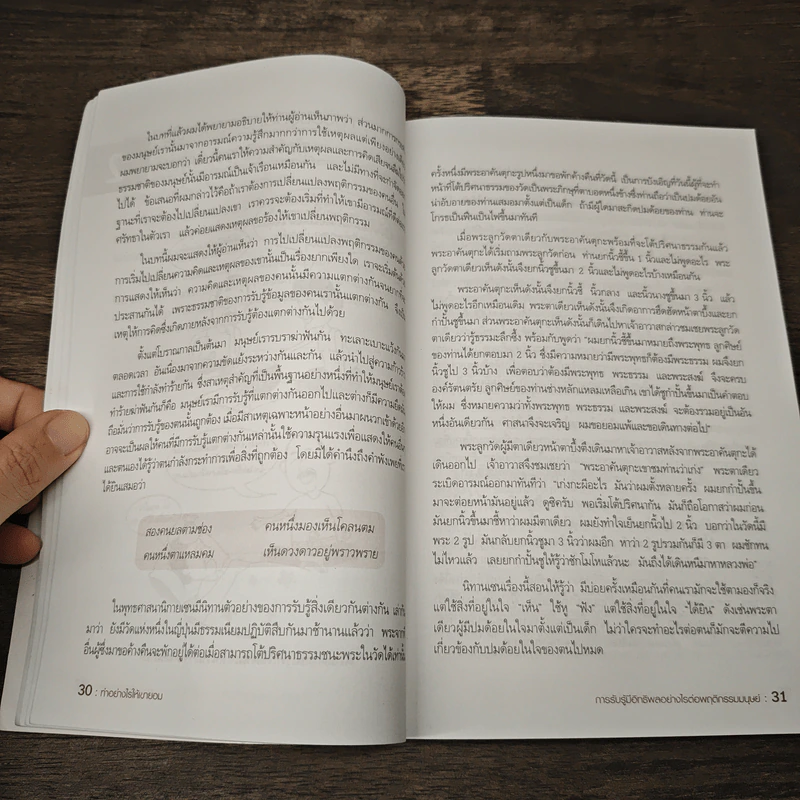 ในบทที่แล้วผมได้พยายามอธิบายให้ท่านผู้อ่านเห็นภาพว่า ส่วนมากการกระทำ
ของมนุษย์เรานั้นมาจากอารมณ์ความรู้สึกมากกว่าการใช้เหตุผลแต่เพียงอย่างเดียว
ผมพยายามจะบอกว่า เดี๋ยวนี้คนเราให้ความสำคัญกับเหตุผลและการคิดเสียจนลืมไปว่า
ธรรมชาติของมนุษย์นั้นมีอารมณ์เป็นเจ้าเรือนเหมือนกัน และไม่มีทางที่จะกำจัด
ไปได้ ข้อเสนอที่ผมกล่าวไว้คือถ้าเราต้องการเปลี่ยนแปลงพฤติกรรมของคนอื่น
ฐานะที่เราจะต้องไปเปลี่ยนแปลงเขา เราควรจะต้องเริ่มที่ทำให้เขามีอารมณ์ที่ดี
ศรัทธาในตัวเรา แล้วค่อยแสดงเหตุผลขอร้องให้เขาเปลี่ยนพฤติกรรม
ในบทนี้ผมจะแสดงให้ผู้อ่านเห็นว่า การไปเปลี่ยนแปลงพฤติกรรมของคน
การเริ่มไปเปลี่ยนความคิดและเหตุผลของเขานั้นเป็นเรื่องยากเพียงใด เราจะเริ่มต้น
การแสดงให้เห็นว่า ความคิดและเหตุผลของคนนั้นมีความแตกต่างกันจนยากที่จะ
ประสานกันได้ เพราะธรรมชาติของการรับรู้ข้อมูลของคนเรานั้นแตกต่างกัน
เหตุให้การคิดซึ่งเกิดภายหลังจากการรับรู้ต้องแตกต่างกันไปด้วย
ตั้งแต่โบราณกาลเป็นต้นมา มนุษย์เรารบราฆ่าฟันกัน ทะเลาะเบาะแว้งกัน
ตลอดเวลา อันเนื่องมาจากความขัดแย้งระหว่างกันและกัน แล้วนำไปสู่ความก้าวร้าว
และการใช้กำลังทำร้ายกัน ซึ่งสาเหตุสำคัญที่เป็นพื้นฐานอย่างหนึ่งที่ทำให้มนุษย์เรา
ทำร้ายฆ่าฟันกันก็คือ มนุษย์เรามีการรับรู้ที่แตกต่างกันออกไปและต่างก็มีความยึด
ถือมั่นว่าการรับรู้ของตนนั้นถูกต้อง เมื่อมีสาเหตุเฉพาะหน้าอย่างอื่นมาผนวกเข้าด้วย
อาจจะเป็นผลให้คนที่มีการรับรู้แตกต่างกันเหล่านั้นใช้ความรุนแรงเพื่อแสดงให้คนอื่น
และตนเองได้รู้ว่าตนกำลังกระทำการเพื่อสิ่งที่ถูกต้อง โดยมิได้คำนึงถึงคำพังเพยที่
ได้ยินเสมอว่า
สองคนยลตามช่อง คนหนึ่งมองเห็นโคลนตม
คนหนึ่งตาแหลมคม เห็นดวงดาวอยู่พราวพราย
ในพุทธศาสนานิกายเซนมีนิทานตัวอย่างของการรับรู้สิ่งเดียวกันต่างกัน เล่ากัน
มาว่า ยังมีวัดแห่งหนึ่งในญี่ปุ่นมีธรรมเนียมปฏิบัติสืบกันมาช้านานแล้วว่า พระจาก
อื่นผู้ซึ่งมาขอค้างคืนจะพักอยู่ได้ต่อเมื่อสามารถโต้ปริศนาธรรมชนะพระในวัดได้เท่านั้น
30 : ทำอย่างไรให้เขายอม
ครั้งหนึ่งมีพระอาคันตุกะรูปหนึ่งมาขอพักค้างคืนที่วัดนี้ เป็นการบังเอิญที่วันนี้ผู้ที่จะทำ
หน้าที่โต้ปริศนาธรรมของวัดเป็นพระภิกษุที่ตาบอดหนึ่งข้างซึ่งท่านถือว่าเป็นปมด้อยอัน
น่าอับอายของท่านเสมอมาตั้งแต่เป็นเด็ก ถ้ามีผู้ใดมาสะกิดปมด้อยของท่าน ท่านจะ
โกรธเป็นฟืนเป็นไฟขึ้นมาทันที
เมื่อพระลูกวัดตาเดียวกับพระอาคันตุกะพร้อมที่จะโต้ปริศนาธรรมกันแล้ว
พระอาคันตุกะได้เริ่มถามพระลูกวัดก่อน ท่านยกนิ้วชี้ขึ้น 1 นิ้วและไม่พูดอะไร พระ
ลูกวัดตาเดียวเห็นดังนั้นจึงยกนิ้วชี้ขึ้นมา 2 นิ้วและไม่พูดอะไรบ้างเหมือนกัน
พระอาคันตุกะเห็นดังนั้นจึงยกนิ้วชี้ นิ้วกลาง และนิ้วนางชูขึ้นมา 3 นิ้ว แล้ว
ไม่พูดอะไรอีกเหมือนเดิม พระตาเดียวเห็นดังนั้นจึงเกิดอาการฮึดฮัดหน้าตาบึ้งและยก
กำปั้นชูขึ้นมา ส่วนพระอาคันตุกะเห็นดังนั้นก็เดินไปหาเจ้าอาวาสกล่าวชมเชยพระลูกวัด
ตาเดียวว่ารู้ธรรมะลึกซึ้ง พร้อมกับพูดว่า “ผมยกนิ้วชี้ขึ้นมาหมายถึงพระพุทธ ลูกศิษย์
ของท่านได้ยกตอบมา 2 นิ้ว ซึ่งมีความหมายว่ามีพระพุทธก็ต้องมีพระธรรม ผมจึงยก
นิ้วชูไป 3 นิ้วบ้าง เพื่อตอบว่าต้องมีพระพุทธ พระธรรม และพระสงฆ์ จึงจะครบ
องค์รัตนตรัย ลูกศิษย์ของท่านช่างหลักแหลมเหลือเกิน เขาได้ชูกำปั้นขึ้นมาเป็นคำตอบ
ให้ผม ซึ่งหมายความว่าทั้งพระพุทธ พระธรรม และพระสงฆ์ จะต้องรวมอยู่เป็นอัน
หนึ่งอันเดียวกัน ศาสนาจึงจะเจริญ ผมขอยอมแพ้และขอเดินทางต่อไป”
พระลูกวัดผู้มีตาเดียวหน้าตาบึ้งตึงเดินมาหาเจ้าอาวาสหลังจากพระอาคันตุกะได้
เดินออกไป เจ้าอาวาสจึงชมเชยว่า “พระอาคันตุกะเขาชมท่านว่าเก่ง” พระตาเดียว
ระเบิดอารมณ์ออกมาทันทีว่า “เก่งกะผีอะไร มันว่าผมตั้งหลายครั้ง ผมยกกำปั้นขึ้น
มาจะต่อยหน้ามันอยู่แล้ว ดูซิครับ พอเริ่มโต้ปริศนากัน มันก็ถือโอกาสว่าผมก่อน
มันยกนิ้วขึ้นมาชี้หาว่าผมมีตาเดียว ผมยังทำใจเย็นยกนิ้วไป 2 นิ้ว บอกว่าในวัดนี้มี
พระ 2 รูป มันกลับยกนิ้วชูมา 3 นิ้วว่าผมอีก หาว่า 2 รูปรวมกันก็มี 3 ตา ผมชักทน
ไม่ไหวแล้ว เลยยกกำปั้นชูให้รู้ว่าชักโมโหแล้วนะ มันถึงได้เดินหนีมาหาหลวงพ่อ”
นิทานเซนเรื่องนี้สอนให้รู้ว่า มีบ่อยครั้งเหมือนกันที่คนเรามักจะใช้ตามองก็จริง
แต่ใช้สิ่งที่อยู่ในใจ “เห็น” ใช้หู “ฟัง” แต่ใช้สิ่งที่อยู่ในใจ “ได้ยิน” ดังเช่นพระตา
เดียวผู้มีปมด้อยในใจมาตั้งแต่เป็นเด็ก ไม่ว่าใครจะทำอะไรต่อตนก็มักจะตีความไป
เกี่ยวข้องกับปมด้อยในใจของตนไปหมด
การรับรู้มีอิทธิพลอย่างไรต่อพฤติกรรมมนุษย์ : 31